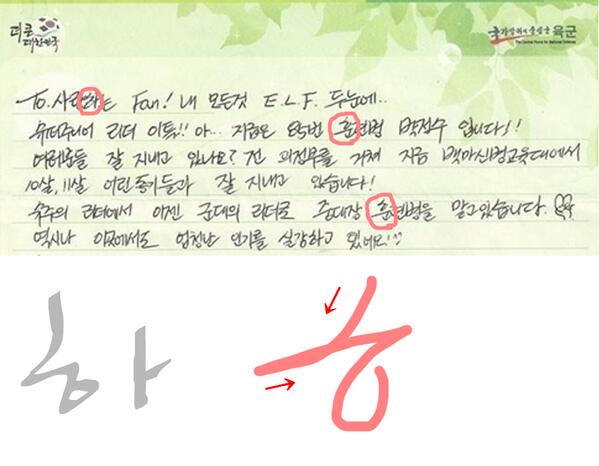 더 큰
대한민국
국가방위의 중심군 육군
The Central Force for National Defense
To. 사랑하는 Fan! 내 모든것 E.L.F. 두눈에..
슈퍼주니어 리더 이특!! 아... 지금은 85번 훈련병 박정수 입니다!!
여러분들 잘 지내고 있나요? 전 거쳐 지금 백마신병교육대에서
10살, 11살 어린 동기들과 잘 지내고 있습니다!
슈주의 리더에서 이젠 군대의 리더로 중대장 훈련병을 맡고있습니다.
역시나 이곳에서도 엄청난 인기를 실감하고 있어요!
하